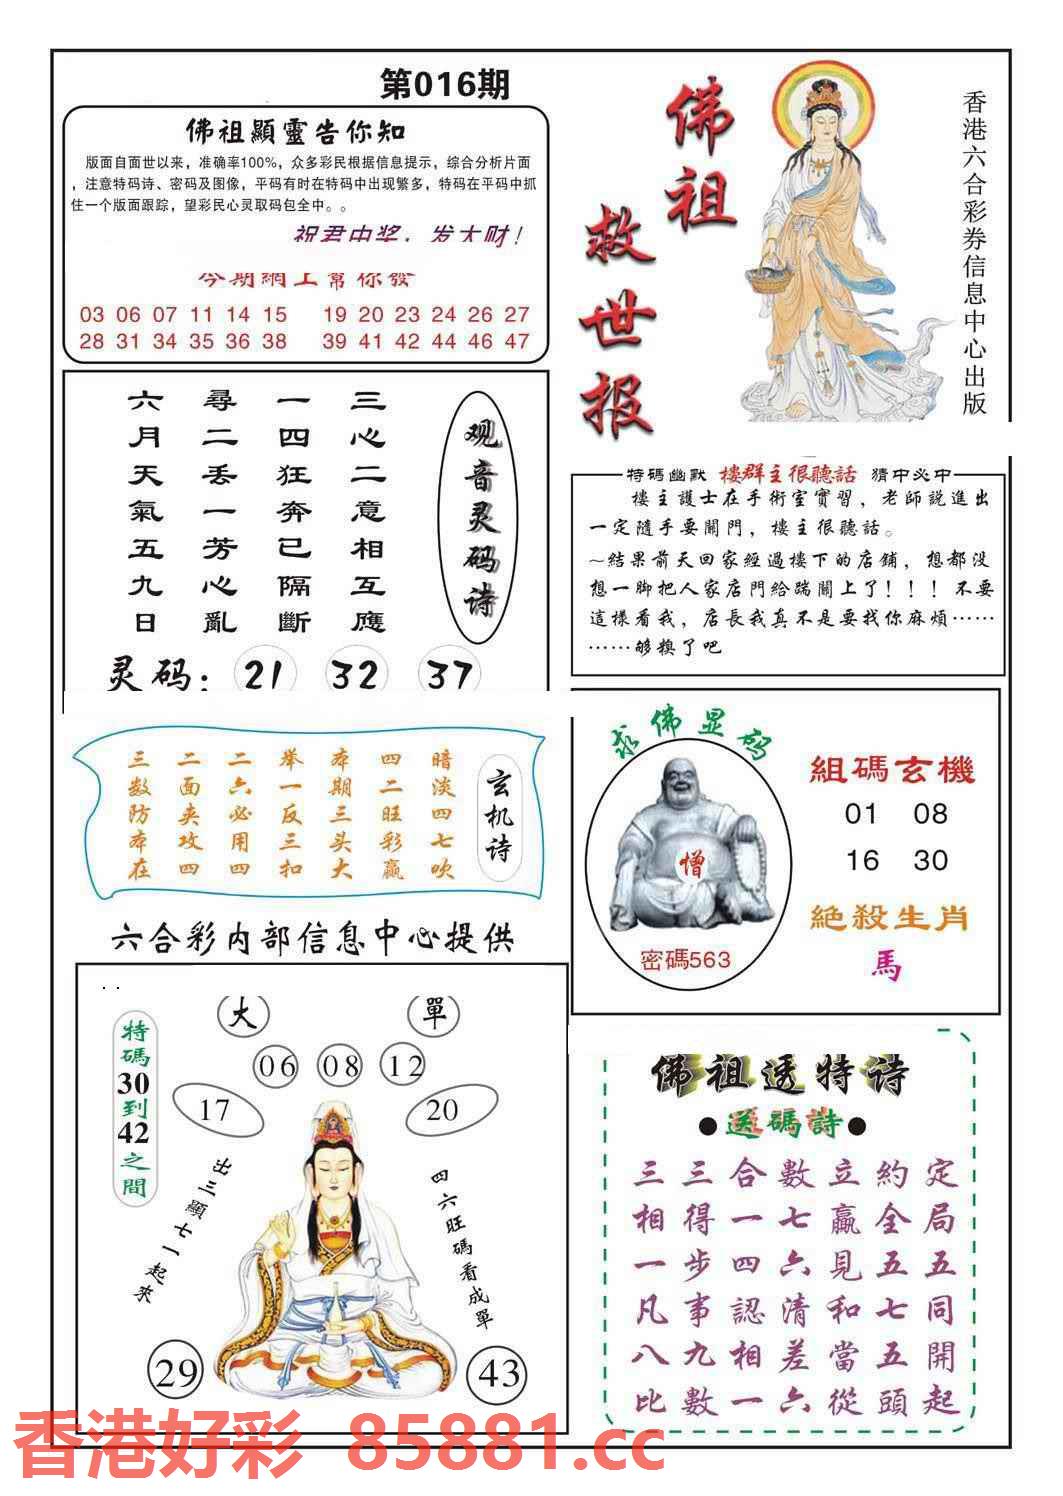 第016期
佛祖顯靈告你知
版面自面世以来，准确率100%，众多彩民根据信息提示，综合分析片面
，注意特码诗、密码及图像，平码有时在特码中出现繁多，特码在平码中抓
住一个版面跟踪，望彩民心灵取码包全中。。
祝君中奖，发大财！
今期網上幫你發
03 06 07 11 14 15 19 20 23 24 26 27
28 31 34 35 36 38 39 41 42 44 46 47
佛祖
救世报
香港六合彩券信息中心出版
观音灵码诗
三心二意相互應
一四狂奔已隔斷
尋二丢一芳心亂
六月天氣五九日
灵码：21 32 37
特碼幽默 樓群主很聽話 猜中必中
樓主護士在手術室實習，老師説進出
一定隨手要關門，樓主很聽話。
～結果前天回家經過樓下的店鋪，想都没
想一脚把人家店門給踹關上了！！！不要
這樣看我，店長我真不是要找你麻煩……
……够糗了吧
玄机诗
暗淡四七吹
四二旺彩赢
本期三头大
举一反三扣
二六必用四
二面夹攻四
三数防本在
求佛显码
憎
密碼563
組碼玄機
01 08
16 30
絶殺生肖
馬
六合彩内部信息中心提供
. .
特碼30到42之間
大 單
06 08 12
17 20
出三顯七一起來
四六旺碼看成單
29 43
佛祖透特诗
●送碼詩●
三三合數立約定
相得一七贏全局
一步四六見五五
凡事認清和七同
八九相差當五開
比數一六從頭起
香港好彩 85881.cc